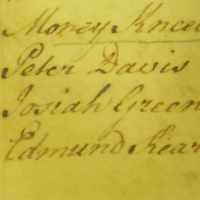 Morey Knee
Peter Davis
Josiah Green
Edmund Kear